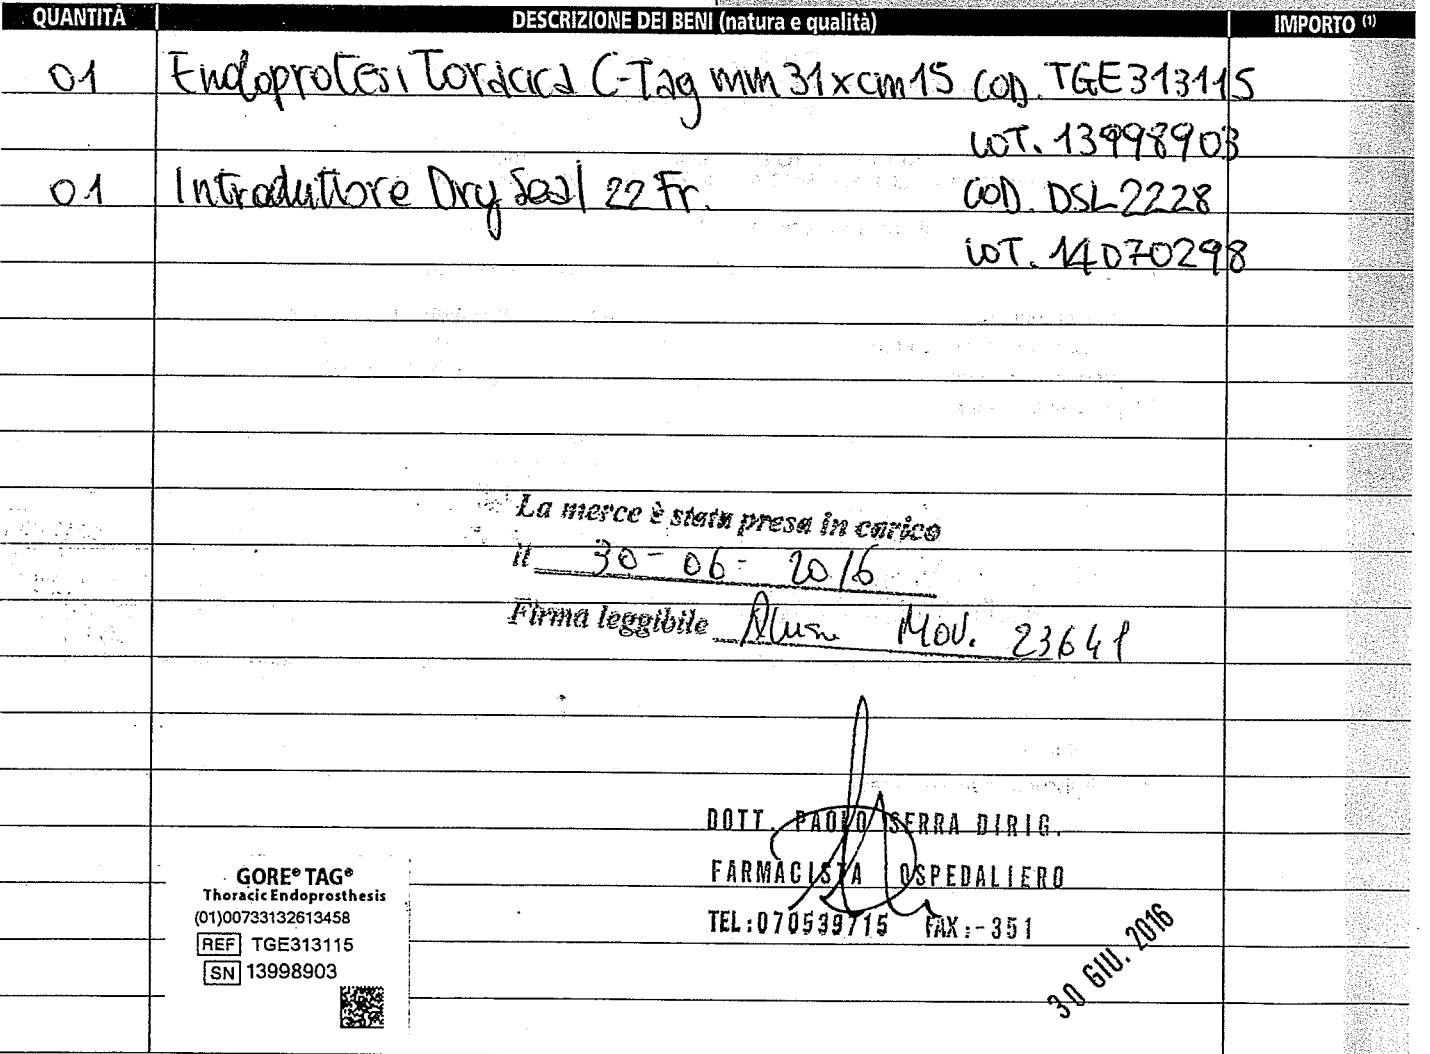 QUANTITÀ DESCRIZIONE DEI BENI (natura e qualità) IMPORTO (1)
01 Endoprotesi Toracica C-Tag mm 31 x cm 15 COD. TGE313115
LOT. 13998903
01 Introduttore Dry Seal 22 Fr. COD. DSL2228
LOT. 14070298
La merce è stata presa in carico
il 30-06-2016
Firma leggibile MOV. 23641
DOTT. PAOLO SERRA DIRIG.
FARMACISTA OSPEDALIERO
TEL:070539715 FAX:-351
30 GIU. 2016
GORE® TAG®
Thoracic Endoprosthesis
(01)00733132613458
REF TGE313115
SN 13998903